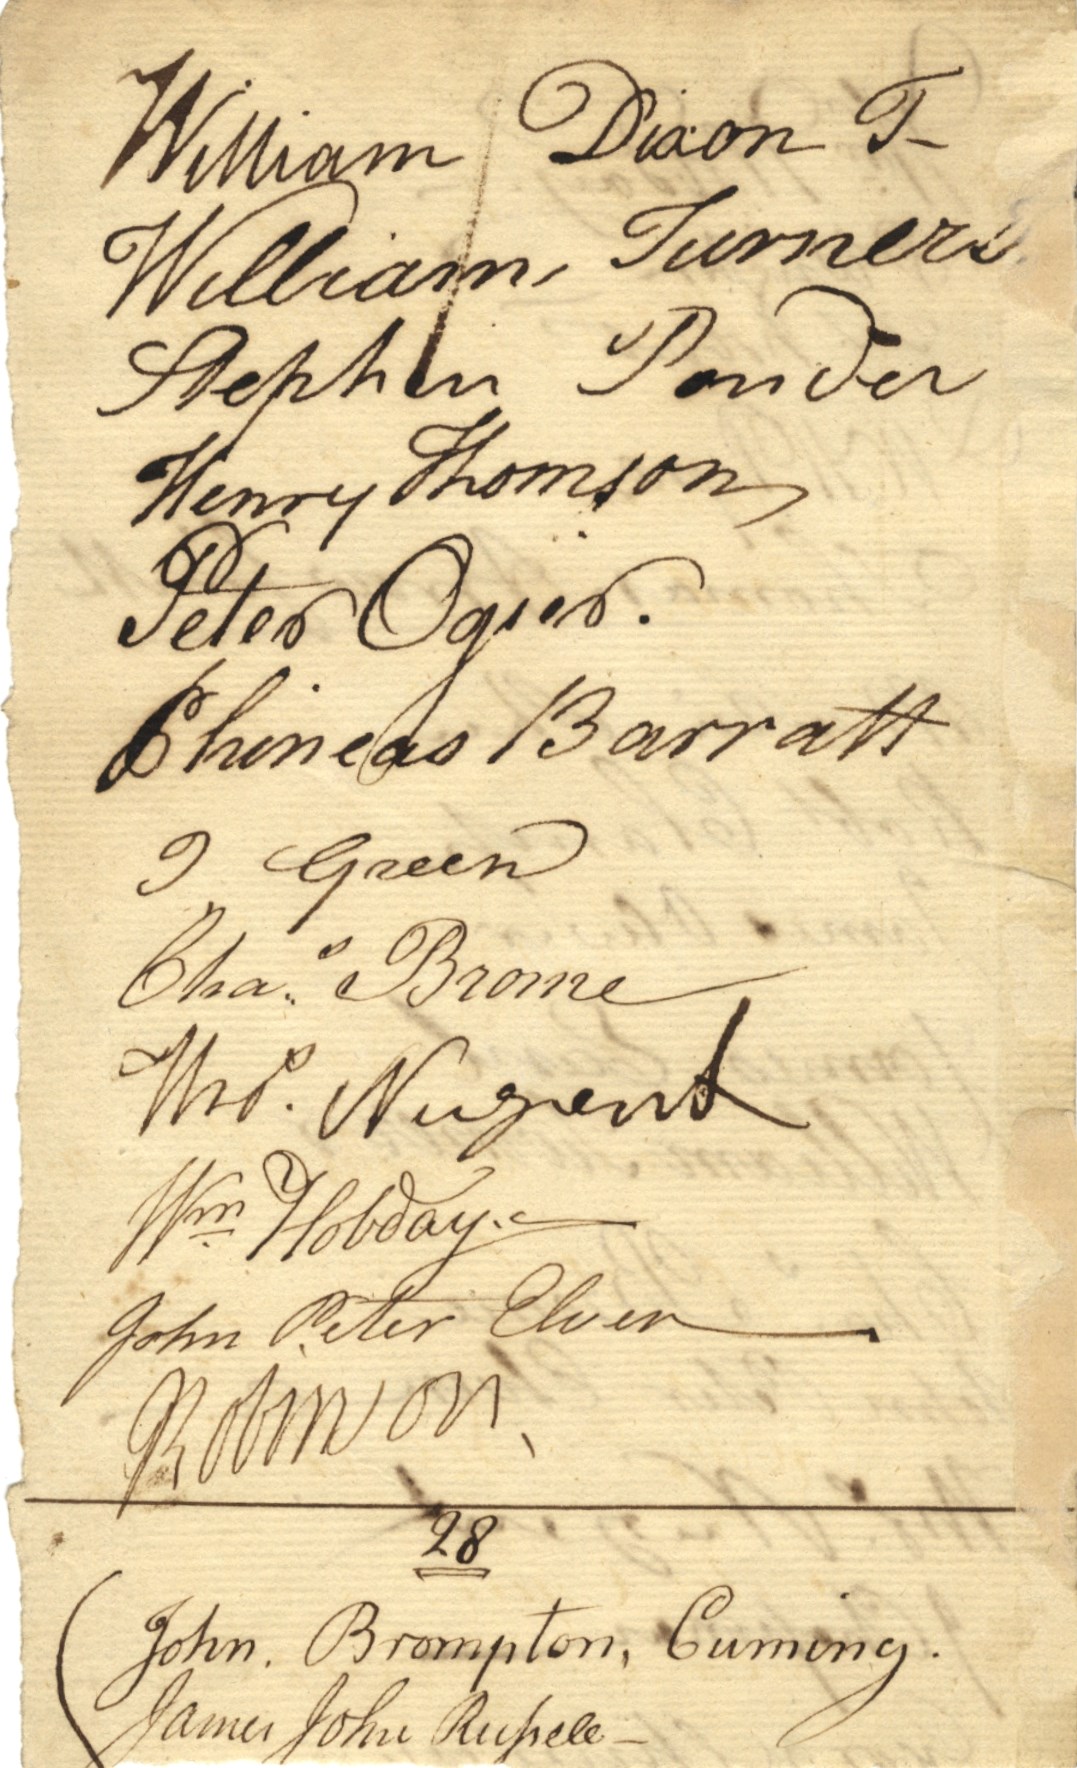 William Dixon T-
William, Turner
Stephen Ponder
Henry Thomson
Peter Ogier.
Phineas Barratt
J Green
Chas. Brome
Thos. Nugent
Wm Hobday.
John Peter Elven
Robinson,
28
John. Brompton, Cuming.
James John Russell